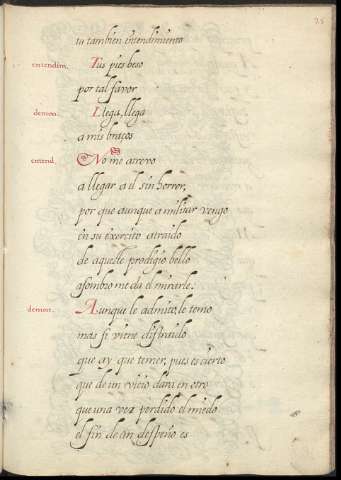 25
tu tambien entendimiento
entendim. Tus pies beso
por tal favor
demon. Llega, llega
a mis braços
entend. No me atrevo
a llegar a él sin horror,
por que aunque a militar vengo
en su exercito atraido
de aqueste prodigio bello
asombro me da el mirarle.
demon. Aunque le admito, le temo
mas si viene disfraçado
que ay que temer, pues es cierto
que de un vicio dara en otro
que una vez perdido el miedo
el fin de un despeño es